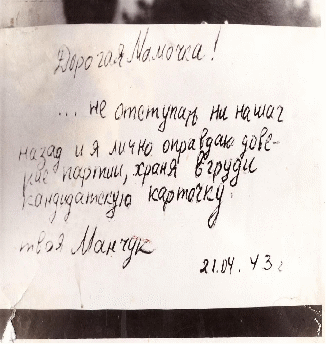 Дорогая Мамочка!
... не отступать ни на шаг
назад и я лично оправдаю дове-
рие партии, храня в груди
кандидатскую карточку.
твоя Манчук
21.04.43 г